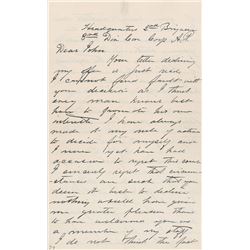 Headquarters 2nd Brigade
2nd Div Cav Corps A.P.
Dear John
Your letter declining
my offer is just recd
I cannot find fault with
your decision as I think
every man knows best
how to promote his own
interests I have always
made it my rule of action
to decide for myself and
I never yet have had
occasion to regret this course
I sincerely regret that circum
stances are such that you
deem it best to decline
nothing would have given
me greater pleasure than
to have welcomed you as
a member of my staff
I do not think the fact